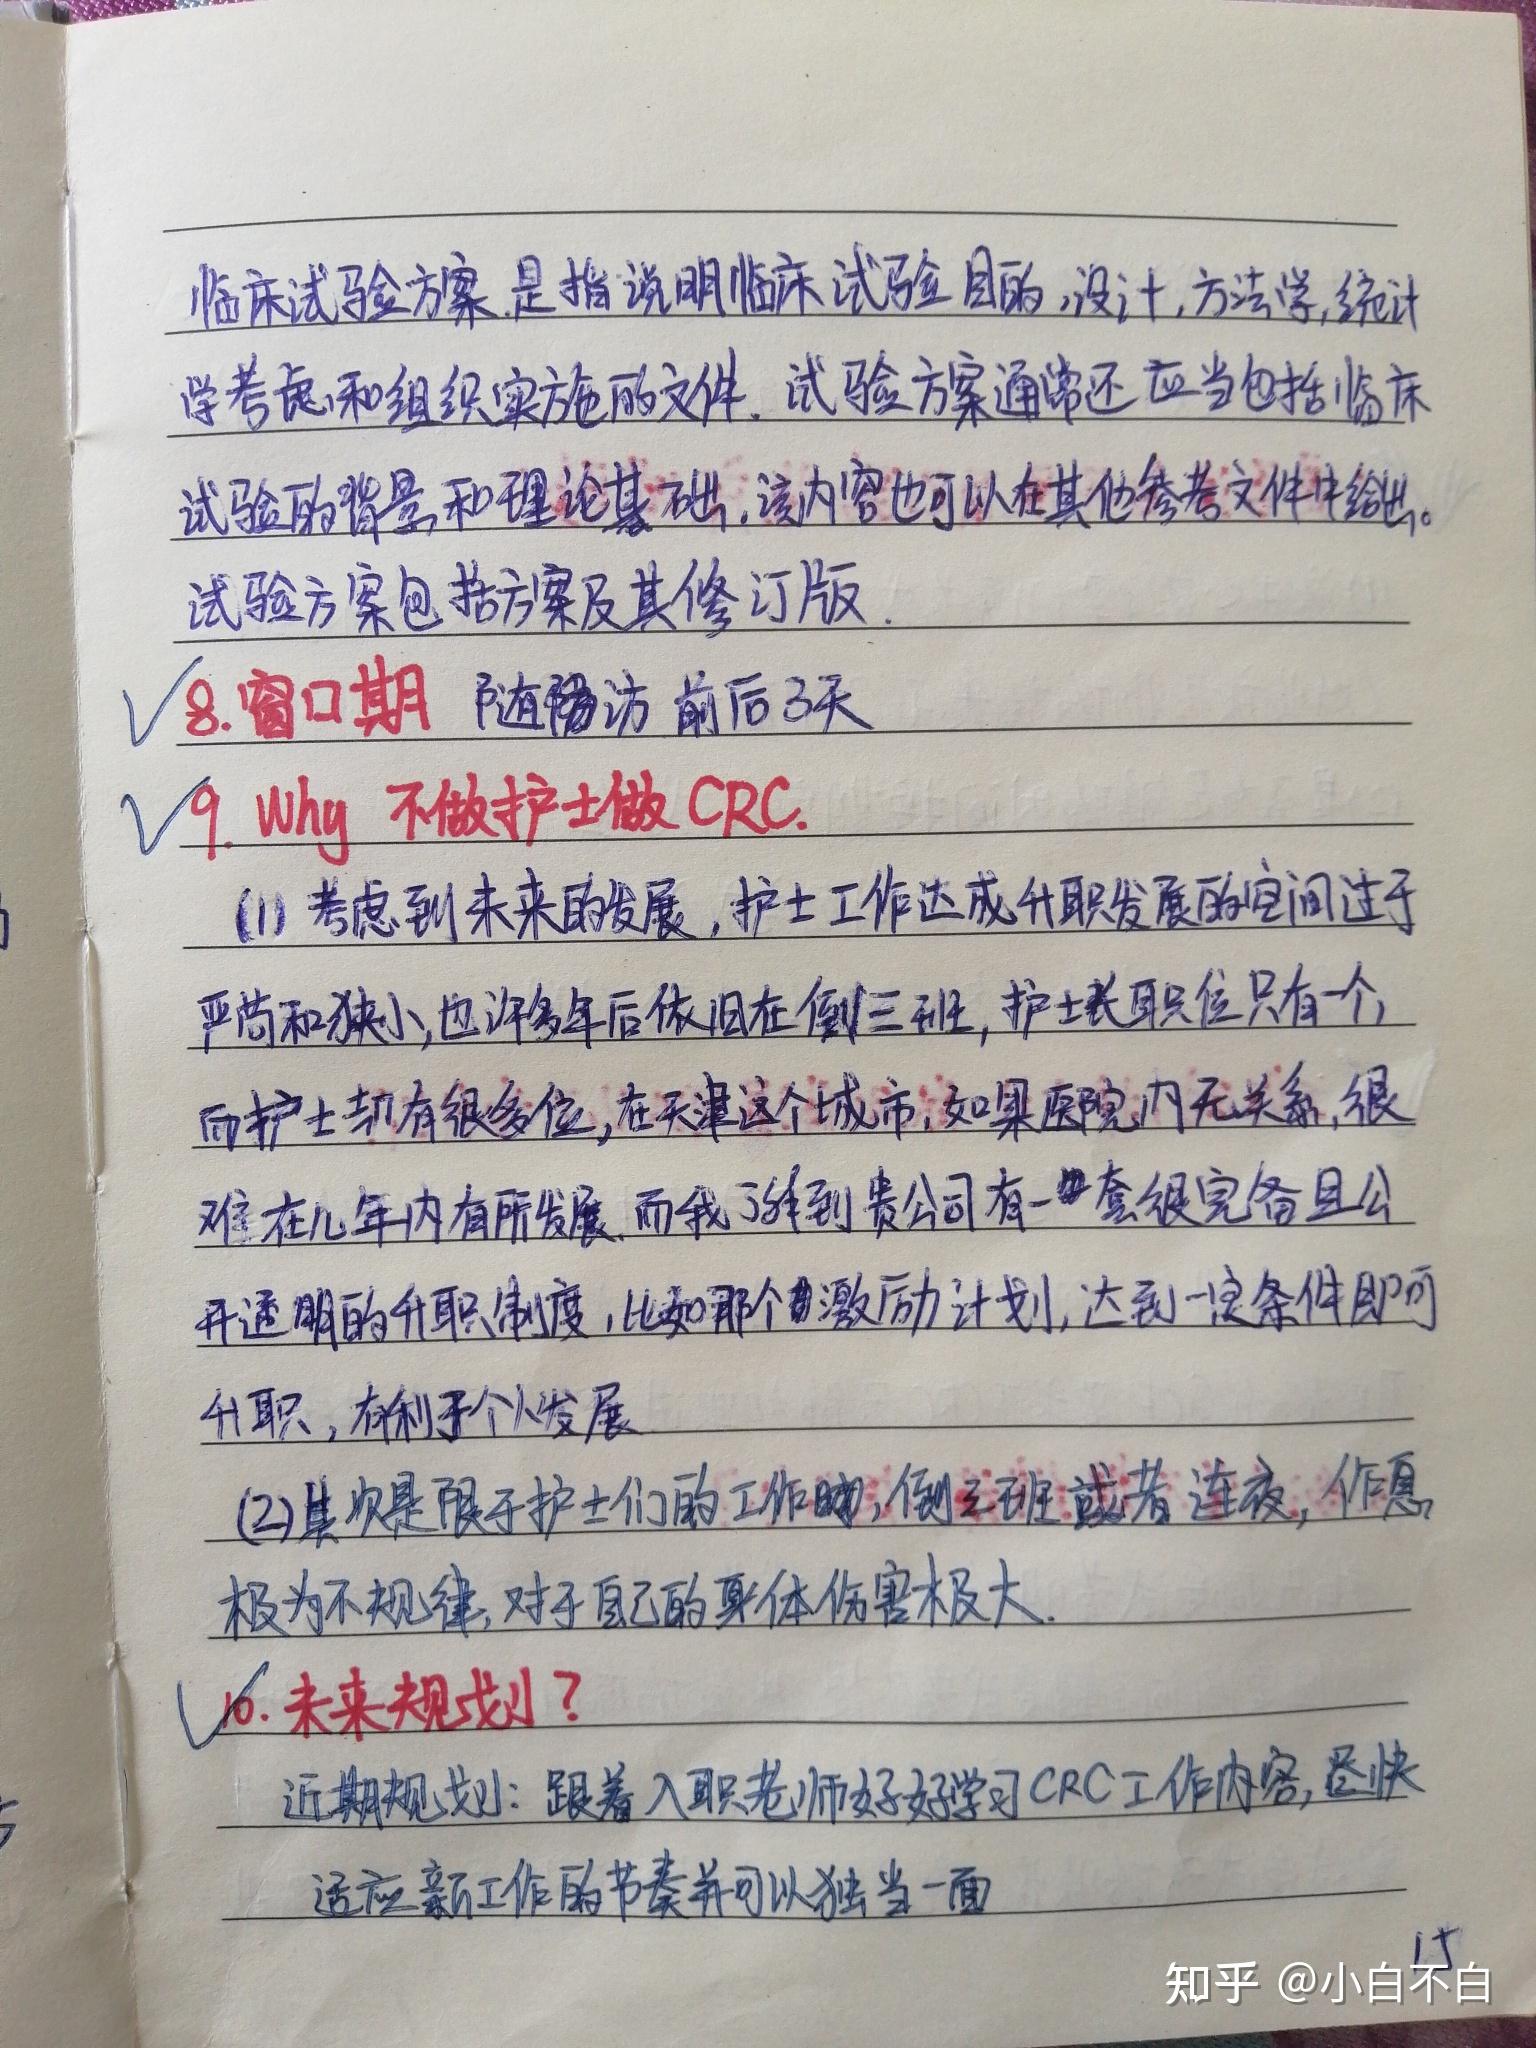 临床试验方案.是指说明临床试验目的,设计,方法学,统计
学考虑和组织实施的文件.试验方案通常还应当包括临床
试验的背景和理论基础.该内容也可以在其他参考文件中给出。
试验方案包括方案及其修订版.
8.窗口期 随访 前后3天
9. Why 不做护士做CRC.
(1)考虑到未来的发展,护士工作达成升职发展的空间过于
严苛和狭小,也许多年后依旧在倒三班,护士长职位只有一个,
而护士却有很多位,在天津这个城市,如果医院内无关系,很
难在几年内有所发展.而我了解到贵公司有一套很完备且公
开透明的升职制度,比如那个激励计划,达到一定条件即可
升职,有利于个人发展
(2)其次是限于护士们的工作,倒三班或者连夜,作息
极为不规律,对于自己的身体伤害极大.
10.未来规划?
近期规划:跟着入职老师好好学习CRC工作内容,尽快
适应新工作的节奏并可以独当一面
15
知乎 @小白不白